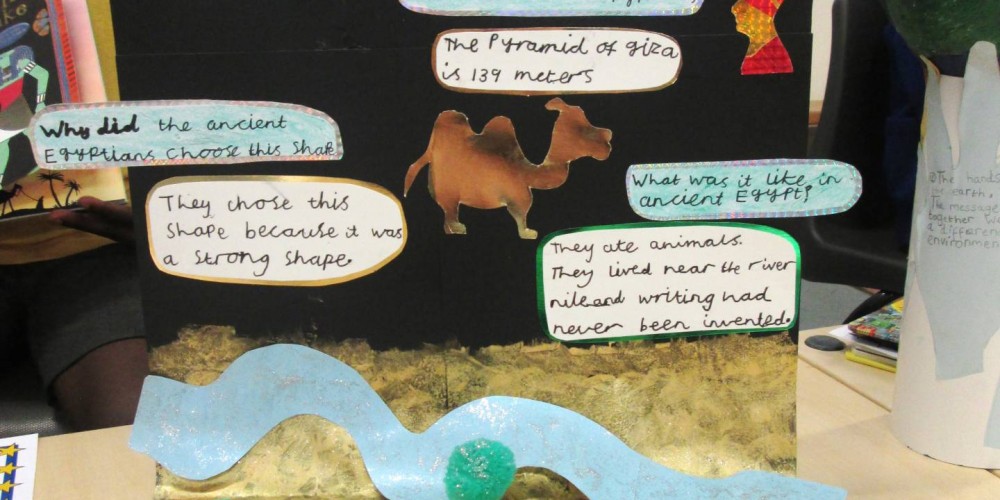 The Pyramid of giza
is 139 meters
Why did the ancient
Egyptians choose this shape
They chose this
shape because it was
a strong shape.
What was it like in
ancient Egypt?
They ate animals.
They lived near the river
nile and writing had
never been invented.
The hands
earth.
The message
together
a differen
environmen